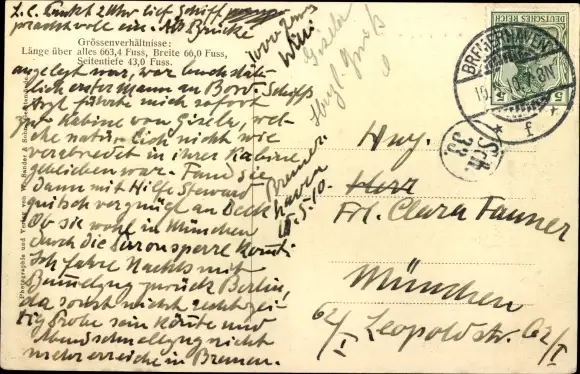 L. C. Punkt 2 Uhr lief Schiff
prachtvoll ein. Als Brücke
Grössenverhältnisse:
Länge über alles 663,4 Fuss, Breite 66,0 Fuss,
Seitentiefe 43,0 Fuss.
angelegt war, war buchstäb
lich erster Mann an Bord. Schiffs
Arzt führte mich sofort
Kabine von Gisela, wel
che natürlich nicht wie
verabredet in ihrer Kabine
geblieben war. Fand sie
Dann mit Hilfe Steward
quitschvergnügt an Deck
Ob sie wohl in München
durch die
Ich fahre Nachts mit
Bummelzug zurück Berlin,
da sonst nicht rechtzei
tig Probe sein könnte und
Abendschnellzug nicht
mehr erreiche in Bremen.
1000 Bussi
Willi
Gisela
Hrzl. Gruß
Bremer
haven
10.5.10.
DEUTSCHES REICH
5
5
BREMERHAVEN
f
Sch.
33.
Herr
Frl. Clara Tanner
München
62/I Leopoldstr. 62/I